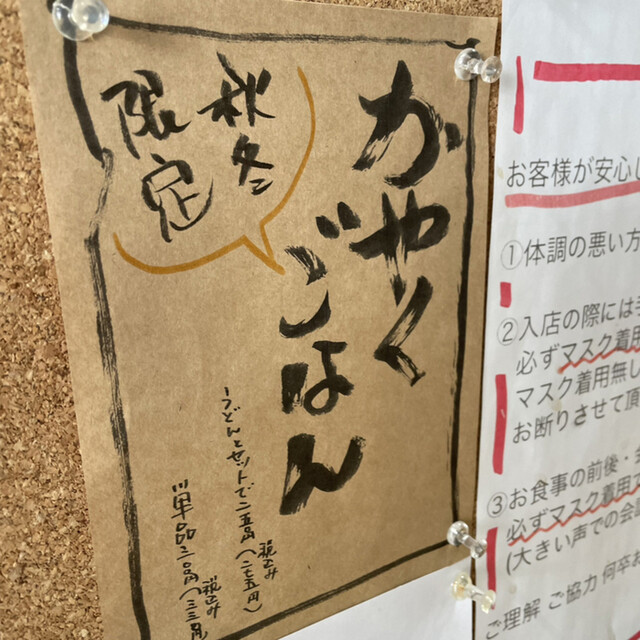 かやく
ごはん
秋冬
限定
うどんとセットで二五〇円(二七五円)
税込み
単品三〇〇円(三三〇円)
税込み
お客様が安心し
①体調の悪い方
②入店の際には
必ずマスク着用
マスク着用無し
お断りさせて頂
③お食事の前後・
必ずマスク着用
(大きい声での会
ご理解 ご協力 何卒